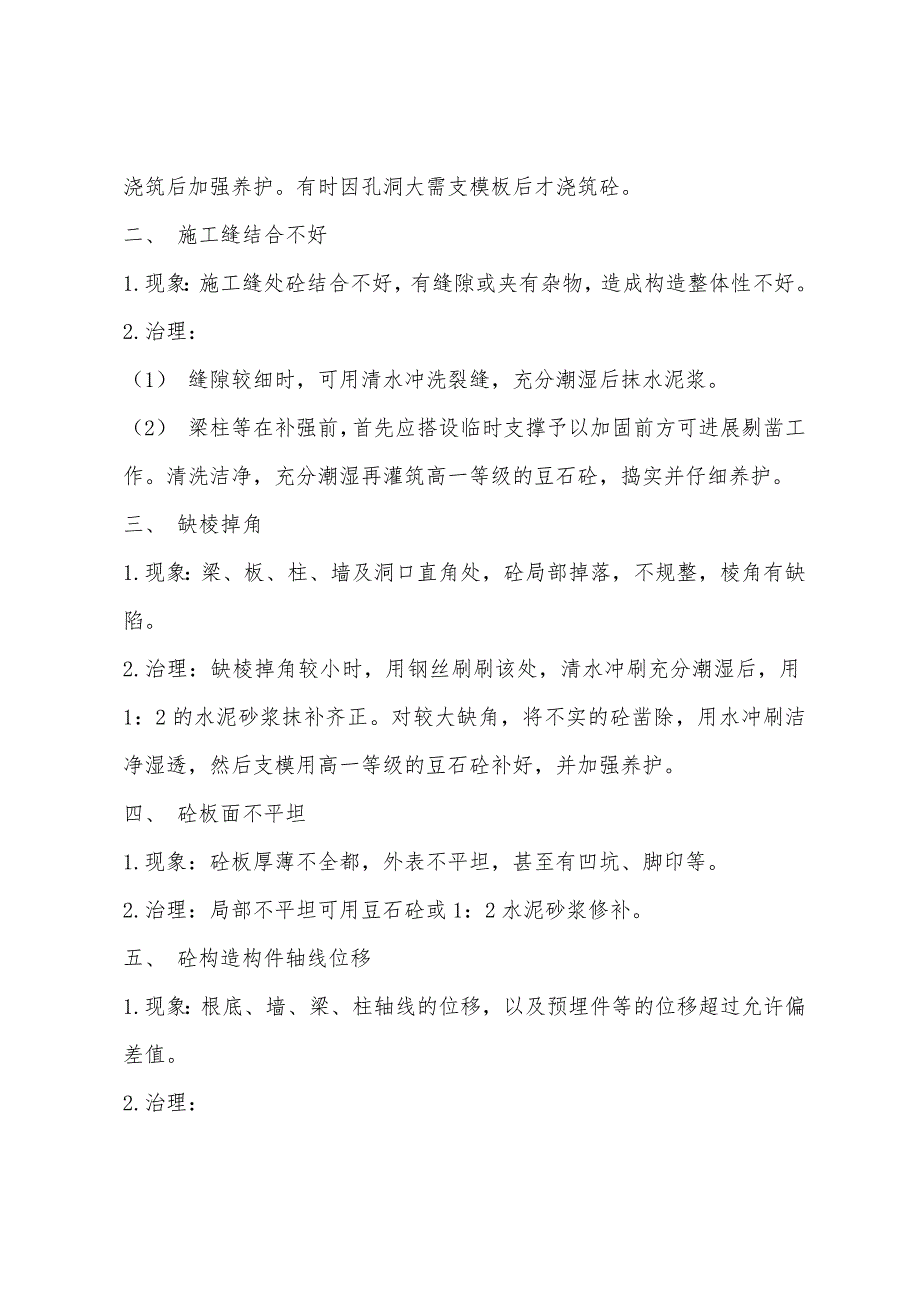 浇筑后加强养护。有时因孔洞大需支模板后才浇筑砼。
二、 施工缝结合不好
1.现象：施工缝处砼结合不好，有缝隙或夹有杂物，造成构造整体性不好。
2.治理：
（1） 缝隙较细时，可用清水冲洗裂缝，充分潮湿后抹水泥浆。
（2） 梁柱等在补强前，首先应搭设临时支撑予以加固前方可进展剔凿工
作。清洗洁净，充分潮湿再灌筑高一等级的豆石砼，捣实并仔细养护。
三、 缺棱掉角
1.现象：梁、板、柱、墙及洞口直角处，砼局部掉落，不规整，棱角有缺
陷。
2.治理：缺棱掉角较小时，用钢丝刷刷该处，清水冲刷充分潮湿后，用
1：2的水泥砂浆抹补齐正。对较大缺角，将不实的砼凿除，用水冲刷洁
净湿透，然后支模用高一等级的豆石砼补好，并加强养护。
四、 砼板面不平坦
1.现象：砼板厚薄不全都，外表不平坦，甚至有凹坑、脚印等。
2.治理：局部不平坦可用豆石砼或1：2水泥砂浆修补。
五、 砼构造构件轴线位移
1.现象：根底、墙、梁、柱轴线的位移，以及预埋件等的位移超过允许偏
差值。
2.治理：